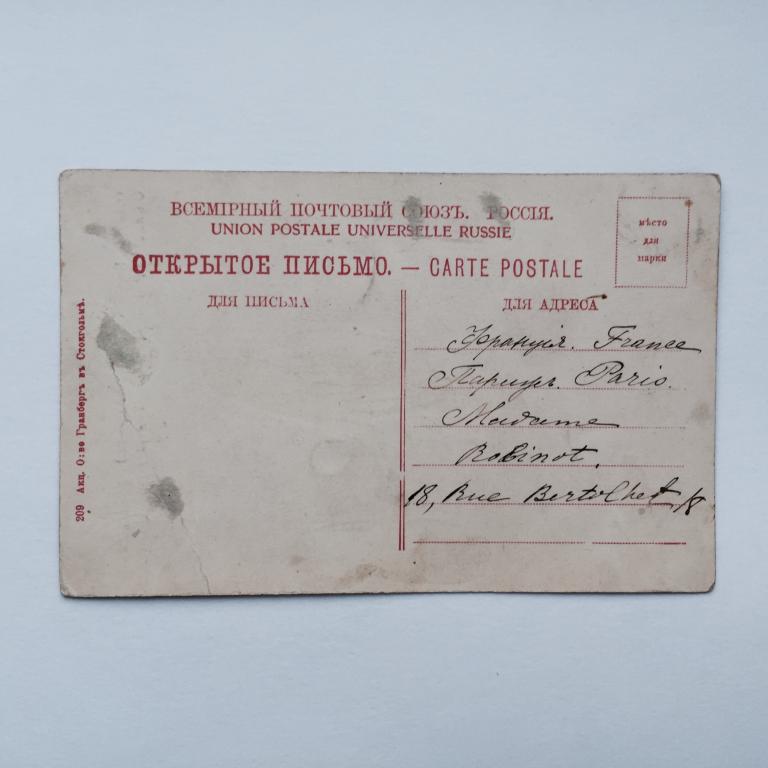 ВСЕМІРНЫЙ ПОЧТОВЫЙ СОЮЗЪ. РОССІЯ.
UNION POSTALE UNIVERSELLE RUSSIE
мѣсто
для
марки
ОТКРЫТОЕ ПИСЬМО. — CARTE POSTALE
ДЛЯ ПИСЬМА
ДЛЯ АДРЕСА
Франція. France
Парижъ. Paris.
Madame
Robinot.
18, Rue Bertolhet, 18
209 Акц. О:во Гранбергъ въ Стокгольмѣ.